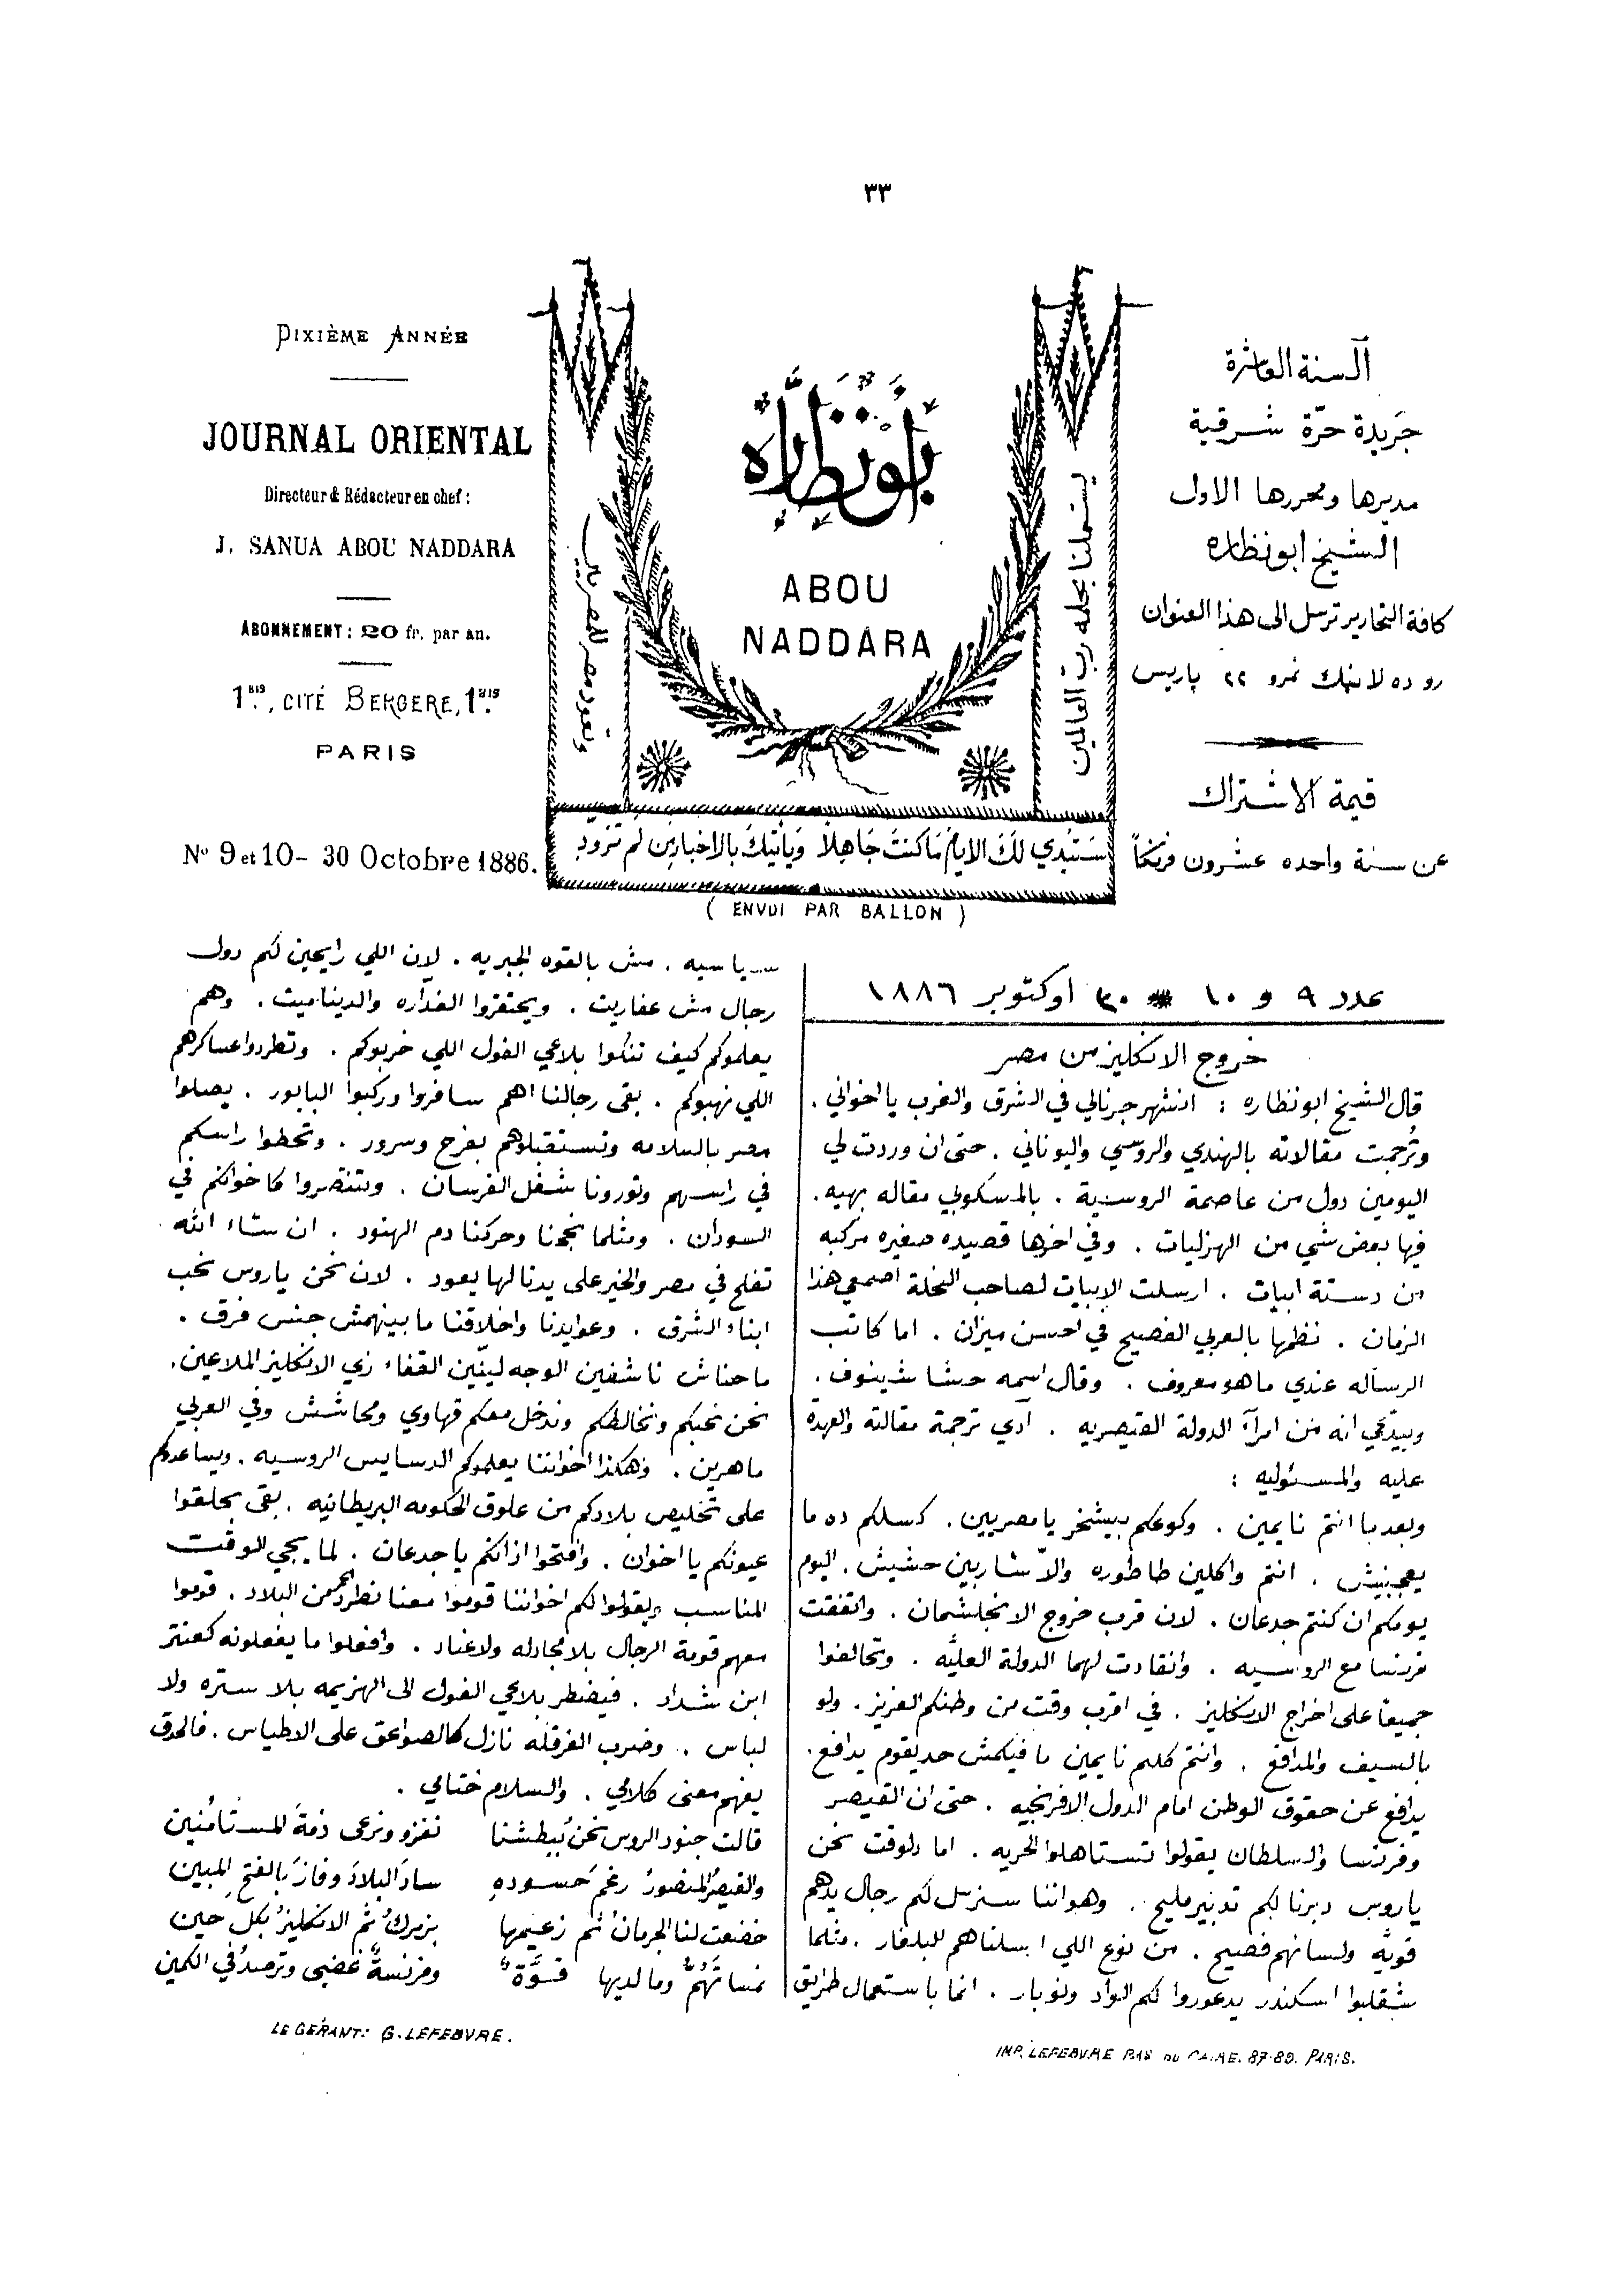 ٣٣
DIXIÈME ANNÉE
JOURNAL ORIENTAL
Directeur & Rédacteur en chef :
J. SANUA ABOU NADDARA
ABONNEMENT : 20 fr. par an.
1 BIS, CITÉ BERGERE, 1 BIS
PARIS
Nº 9 et 10 - 30 Octobre 1886.
ابو نظاره
ABOU
NADDARA
يستملنا بجله رب العالمين
وتعود مصر للمصريين
ستبدي لك الايام ما كنت جاهلا وياتيك بالاخبار من لم تزود
( ENVOI PAR BALLON )
السنة العاشرة
جريدة حرّة شرقية
مديرها ومحررها الاول
الشيخ ابو نظاره
كافة التحارير ترسل الى هذا العنوان
رو ده لانيك نمرو ٢٢ پاريس
قيمة الاشتراك
عن سنة واحده عشرون فرنكاً
عدد ٩ و ١٠ * ٣٠ اوكتوبر ١٨٨٦
خروج الانكليز من مصر
قال الشيخ ابو نظاره : انشهر جرنالي في الشرق والغرب يا اخواني .
وتُرجمت مقالاته بالهندي والروسي واليوناني . حتى ان وردت لي
اليومين دول من عاصمة الروسية . بالمسكوبي مقاله بهيه .
فيها بعض شي من الهزليات . وفي اخرها قصيده صغيره مركبه
من دستة ابيات . ارسلت الابيات لصاحب النحلة اصمعي هذا
الزمان . نظمها بالعربي الفصيح في احسن ميزان . اما كاتب
الرساله عندي ما هو معروف . وقال اسمه حشاشينوف .
وبيدّعي انه من امرآء الدولة القيصريه . آدي ترجمة مقالته والعهدة
عليه والمسئوليه :
وبعد يا انتم نايمين . وكوعكم بيشخر يا مصريين . كسلكم ده ما
يعجبنيش . انتم واكلين طاطوره والاّ شاربين حشيش . اليوم
يومكم ان كنتم جدعان . لان قرب خروج الانجلشمان . واتفقت
فرنسا مع الروسيه . وانقادت لهما الدولة العليّه . وتحالفوا
جميعاً على اخراج الانكليز . في اقرب وقت من وطنكم العزيز . ولو
بالسيف والمدافع . وانتم كلكم نايمين ما فيكمش حد يقوم يدافع .
يدافع عن حقوق الوطن امام الدول الافرنجيه . حتى ان القيصر
وفرنسا والسلطان يقولوا تستاهلوا الحريه . اما دلوقت نحن
ياروس دبرنا لكم تدبير مليح . وهو اننا سنرسل لكم رجال يدهم
قويّه ولسانهم فصيح . من نوع اللي ارسلناهم للبلغار . مثلما
شقلبوا اسكندر يدعوروا لكم الواد ونوبار . انما باستعمال طرايق
سياسيه . مش بالقوه الجبريه . لان اللي رايحين لكم دول
رجال مش عفاريت . ويحتقروا الغدّاره والديناميت . وهم
يعلموكم كيف تنكوا بلاعي الفول اللي خربوكم . وتطردوا عساكرهم
اللي نهبوكم . بقى رجالنا اهم سافروا وركبوا البابور . يصلوا
مصر بالسلامه وتستقبلوهم بفرح وسرور . وتحطوا راسكم
في راسهم وتورونا شغل الفرسان . وتنتصروا كاخوانكم في
السودان . ومثلما نجحنا وحركنا دم الهنود . ان شاء الله
تفلح في مصر والخير على يدنا لها يعود . لان نحن ياروس نحب
ابناء الشرق . وعوايدنا واخلاقنا ما بينهمش جنس فرق .
ما حناش ناشفين الوجه لينين القفاء زي الانكليز الملاعين .
نحن نحبكم ونخالطكم وندخل معكم قهاوي ومحاشش وفي العربي
ماهرين . وهكذا اخواننا يعلموكم الدسايس الروسيه . ويساعدوكم
على تخليص بلادكم من علوق الحكومه البريطانيه . بقى بحلقوا
عيونكم يا اخوان . وافتحوا اذانكم يا جدعان . لما يجي الوقت
المناسب ويقولوا لكم اخواننا قوموا معنا نطرد من البلاد . قوموا
معهم قومة الرجال بلا مجادله ولا عناد . وافعلوا ما يفعلونه كعنتر
ابن شداد . فيضطر بلاعي الفول الى الهزيمه بلا ستره ولا
لباس . وضرب الفرقله نازل كالصواعق على الاطياس . فالحدق
يفهم معنى كلامي . والسلام ختامي .
قالت جنود الروس نحن ببطشنا نغزو ونرعى ذمة للمستأمنين
والقيصر المنصور رغم حسوده ساد البلاد وفاز بالفتح المبين
خضعت لنا الجرمان ثم زعيمها بزمرك ثم الانكليز بكل حين
نمساتهم وما لديها قوّة وفرنسة غضبى وترصد في الكمين
LE GÉRANT : G. LEFEBVRE.
IMP. LEFEBVRE PAS DU CAIRE. 87-89. PARIS.